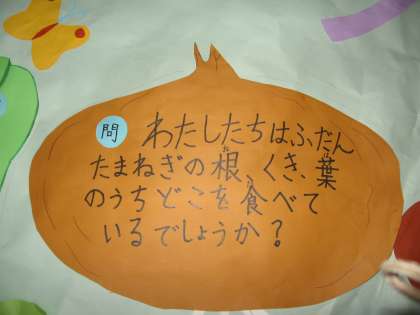 問 わたしたちはふだん
たまねぎの根、くき、葉
のうちどこを食べて
いるでしょうか？